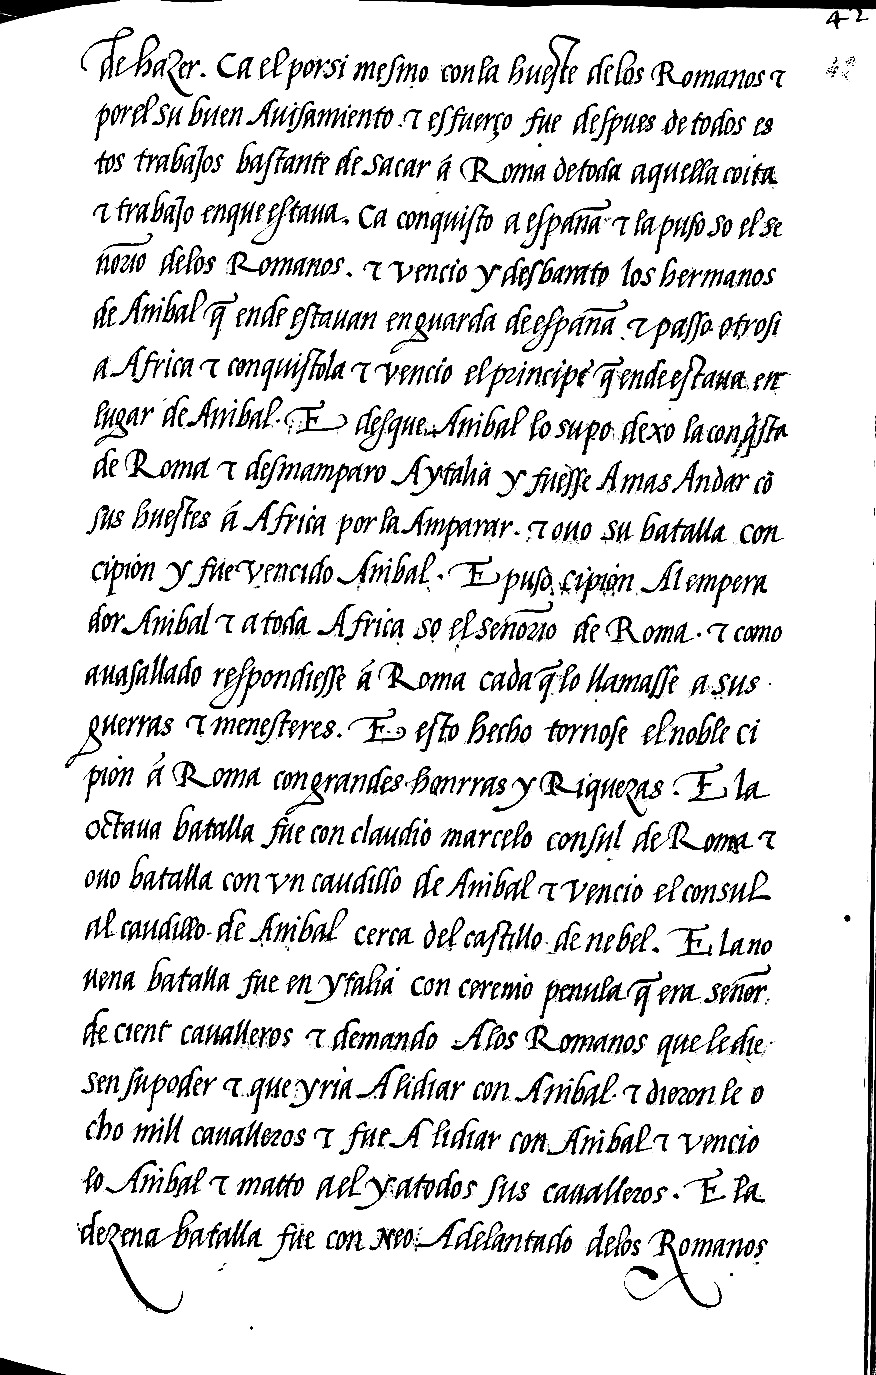 42
42
de hazer. Ca el porsi mesmo conla hueste delos Romanos τ
porel su buen Auisamiento τ esfuerço fue despues de todos es
tos trabaJos bastante de sacar á Roma detoda aquella coita
τ trabaJo enque estaua. Ca conquisto a españa τ la puso so el se
ñorio delos Romanos. τ vencio y desbarato los hermanos
de Anibal q̃ ende estauan enguarda de españa τ passo otrosi
a Africa τ conquistola τ vencio el principe q̃ ende estaua en
lugar de Anibal. E desque Anibal lo supo dexo la conq̃sta
de Roma τ desmamparo Aytalia y fuesse Amas Andar cõ
sus huestes á Africa por la Amparar. τ ouo su batalla con
cipion y fue vencido Anibal. E puso cipion Al empera
dor Anibal τ a toda Africa so el señorio de Roma. τ como
auasallado respondiesse á Roma cada q̃ lo llamasse a sus
guerras τ menesteres. E esto hecho tornose el noble ci
pion á Roma congrandes honrras y Riquezas. E la
octaua batalla fue con claudio marcelo consul de Roma τ
ouo batalla con vn caudillo de Anibal τ vencio el consul
al caudillo de Anibal cerca del castillo de nebel. E la no
uena batalla fue en ytalia con cerenio penula q̃ era señor
de cient caualleros τ demando Alos Romanos que le die
sen su poder τ que yria A lidiar con Anibal τ dieron le o
cho mill caualleros τ fue A lidiar con Anibal τ vencio
lo Anibal τ matto a el y atodos sus caualleros. E la
dezena batalla fue con neo Adelantado delos Romanos